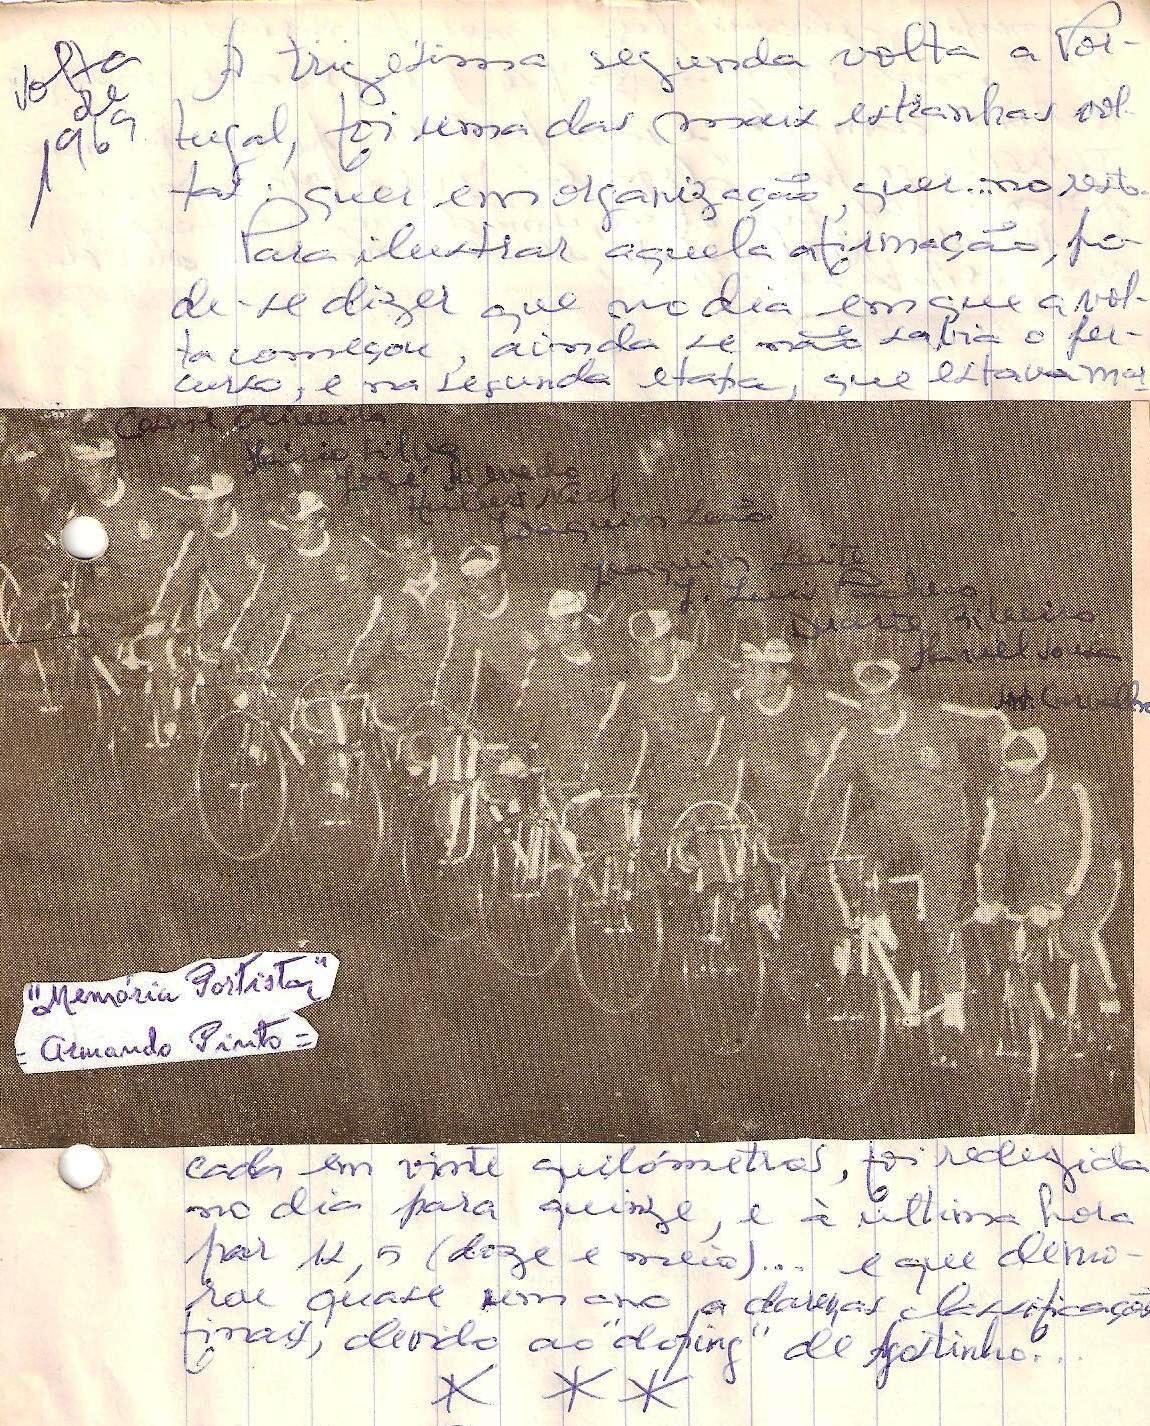 Volta
de
1969
A trigésima segunda volta a Por-
tugal, foi uma das mais estranhas vol-
tas; quer em organização, quer... no resto.
Para ilustrar aquela afirmação, po-
de-se dizer que no dia em que a vol-
ta começou, ainda se não sabia o per-
curso, e na segunda etapa, que estava mar-
Cosme Oliveira
Mário Silva
José Azevedo
Hubert Niel
Joaquim Leão
Joaquim Leite
J. Luis Pacheco
Manuel Sousa
Carvalho
"Memória Portista"
= Armando Pinto =
cada em vinte quilómetros, foi reduzida
no dia para quinze, e à última hora
por 12,5 (doze e meio)... e que demo-
rou quase um ano a dar as classificações
finais, devido ao "doping" de Agostinho...